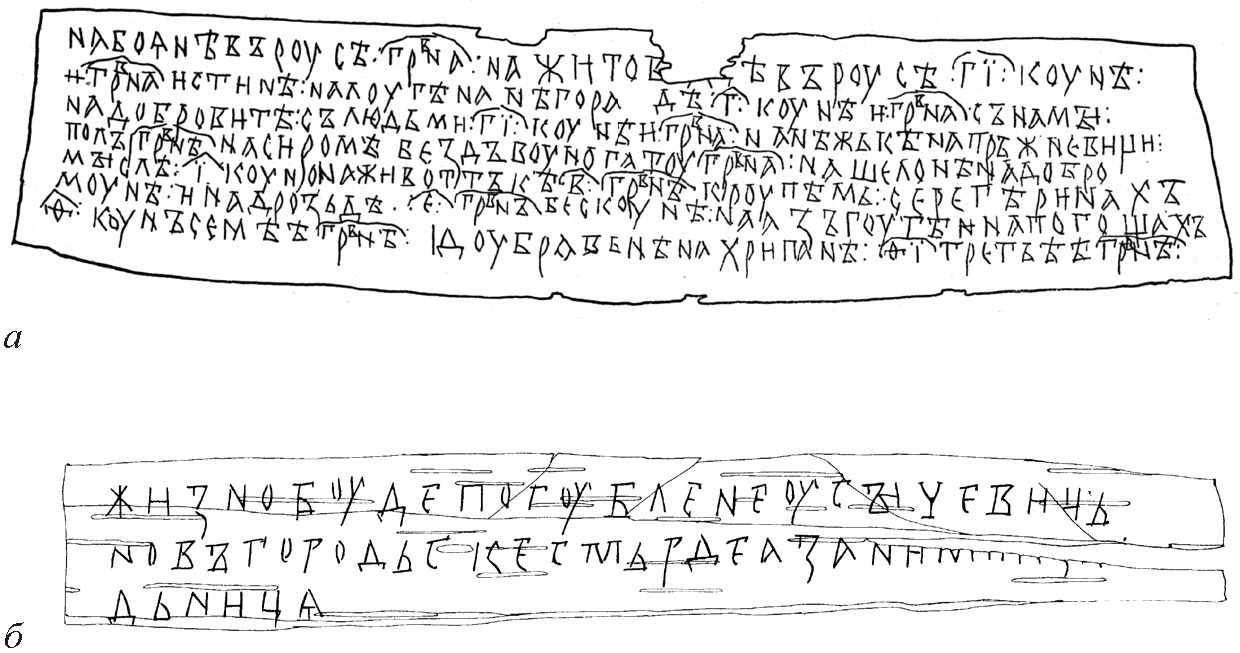 наболѧнѣвъроусѣ:гр҃вна:нажитоб ѣвъроусѣ:г҃ї:коунѣ:
и:гр҃внаистинѣ:налоугѣнанѣгора дѣ:г҃:коунѣигр҃внасънамъі:
надобровитѣ:съльюдьми:г҃ї:коунѣигр҃вна:нанѣжькѣнапрѣжневици:
полъгр҃внѣнасиромѣбездъвоуногатоугр҃вна:нашелонѣнадобро
мъіслѣ:ї҃:коунонаживоттъкѣ:в҃:гр҃внѣкроупѣмь:серегѣринахъ
моунѣ:инадрозьдѣ:е҃:гр҃внъбескоунѣ:наазъгоутѣинапогощахъ
ѳ҃:коунъсемѣѣгр҃внѣ:доубравьнѣнахрипанѣ:ѳ҃їтретьѣѣгр҃внѣ:
а
жизнобоудепогоубленеоусъічевиць
новъгородьскесмьрдеазани
дьницѧ
б